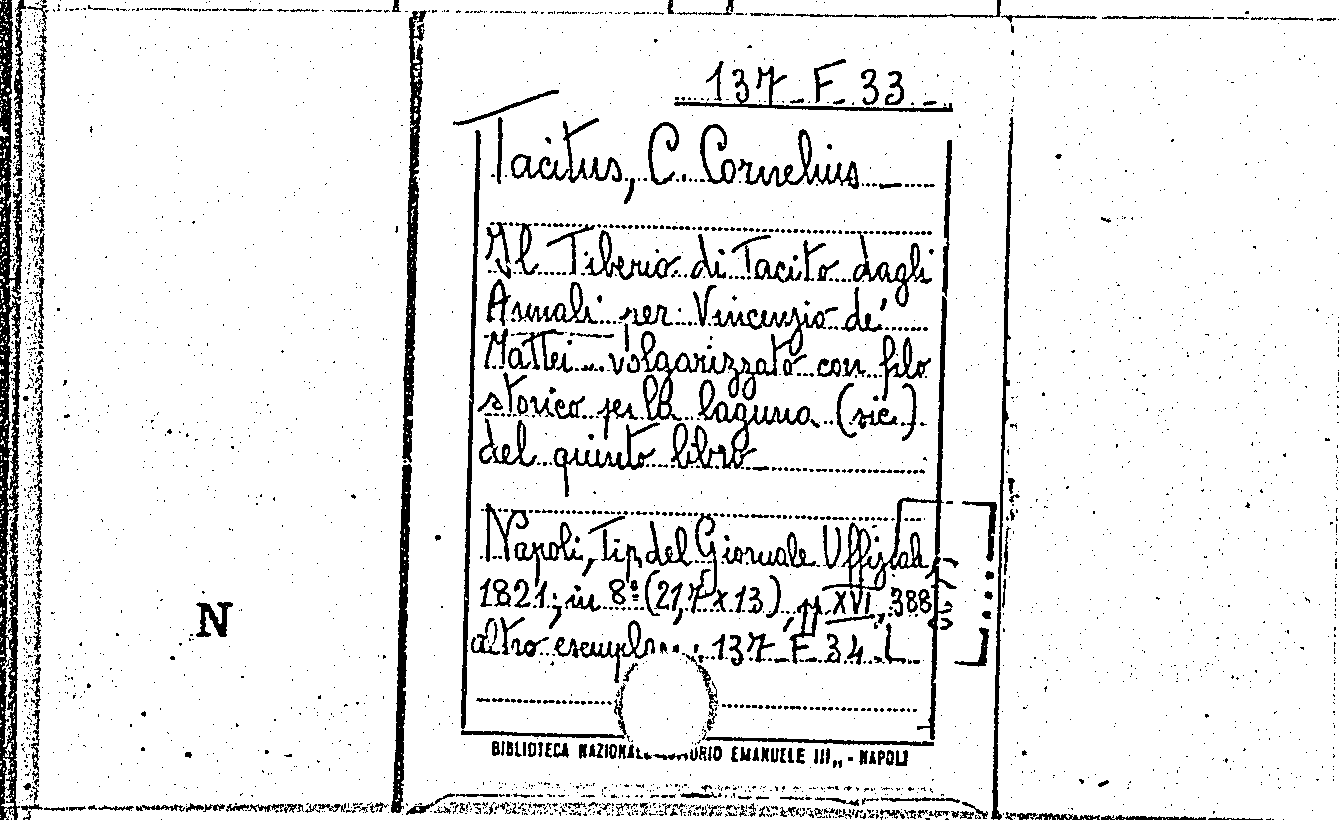 137 F 33
Tacitus, C. Cornelius
Il Tiberio di Tacito dagli
Annali per Vincenzio de'
Mattei... volgarizzato con filo
storico per la laguna (sic.)
del quinto libro
Napoli, Tip. del Giornale Uffiziale,
1821; in 8º (21,7 x 13), pp XVI, 388
altro esempl... : 137 F 34
N
BIBLIOTECA NAZIONALE EMANUELE III„ - NAPOLI